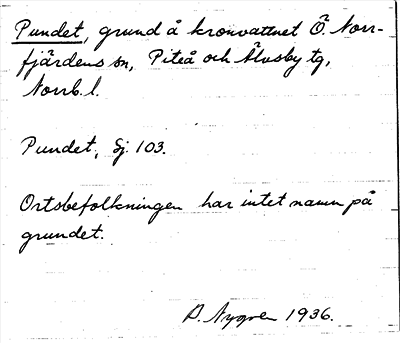 Pundet, grund å kronvattnet Ö. Norr-
fjärdens sn, Piteå och Älvsby tg,
Norrb. l.
Pundet, Sj. 103.
Ortsbefolkningen har intet namn på
grundet.
D. Nygren 1936.